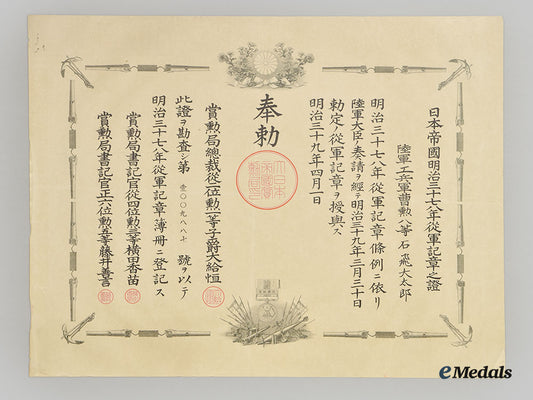 日本帝國明治三十七八年從軍記章之證
陸軍工兵軍曹勲八等石飛大太郎
明治三十七八年從軍記章條例ニ依リ
陸軍大臣ノ奏請ヲ經テ明治三十九年三月三十日
勅定ノ從軍記章ヲ授與ス
明治三十九年四月一日
奉勅
賞勲局總裁從二位勲一等子爵大給恒
此證ヲ勘査シ第壹〇〇九八八七號ヲ以テ
明治三十七八年從軍記章簿冊ニ登記ス
賞勲局書記官從四位勲三等横田香苗
賞勲局書記官正六位勲五等藤井善言
eMedals